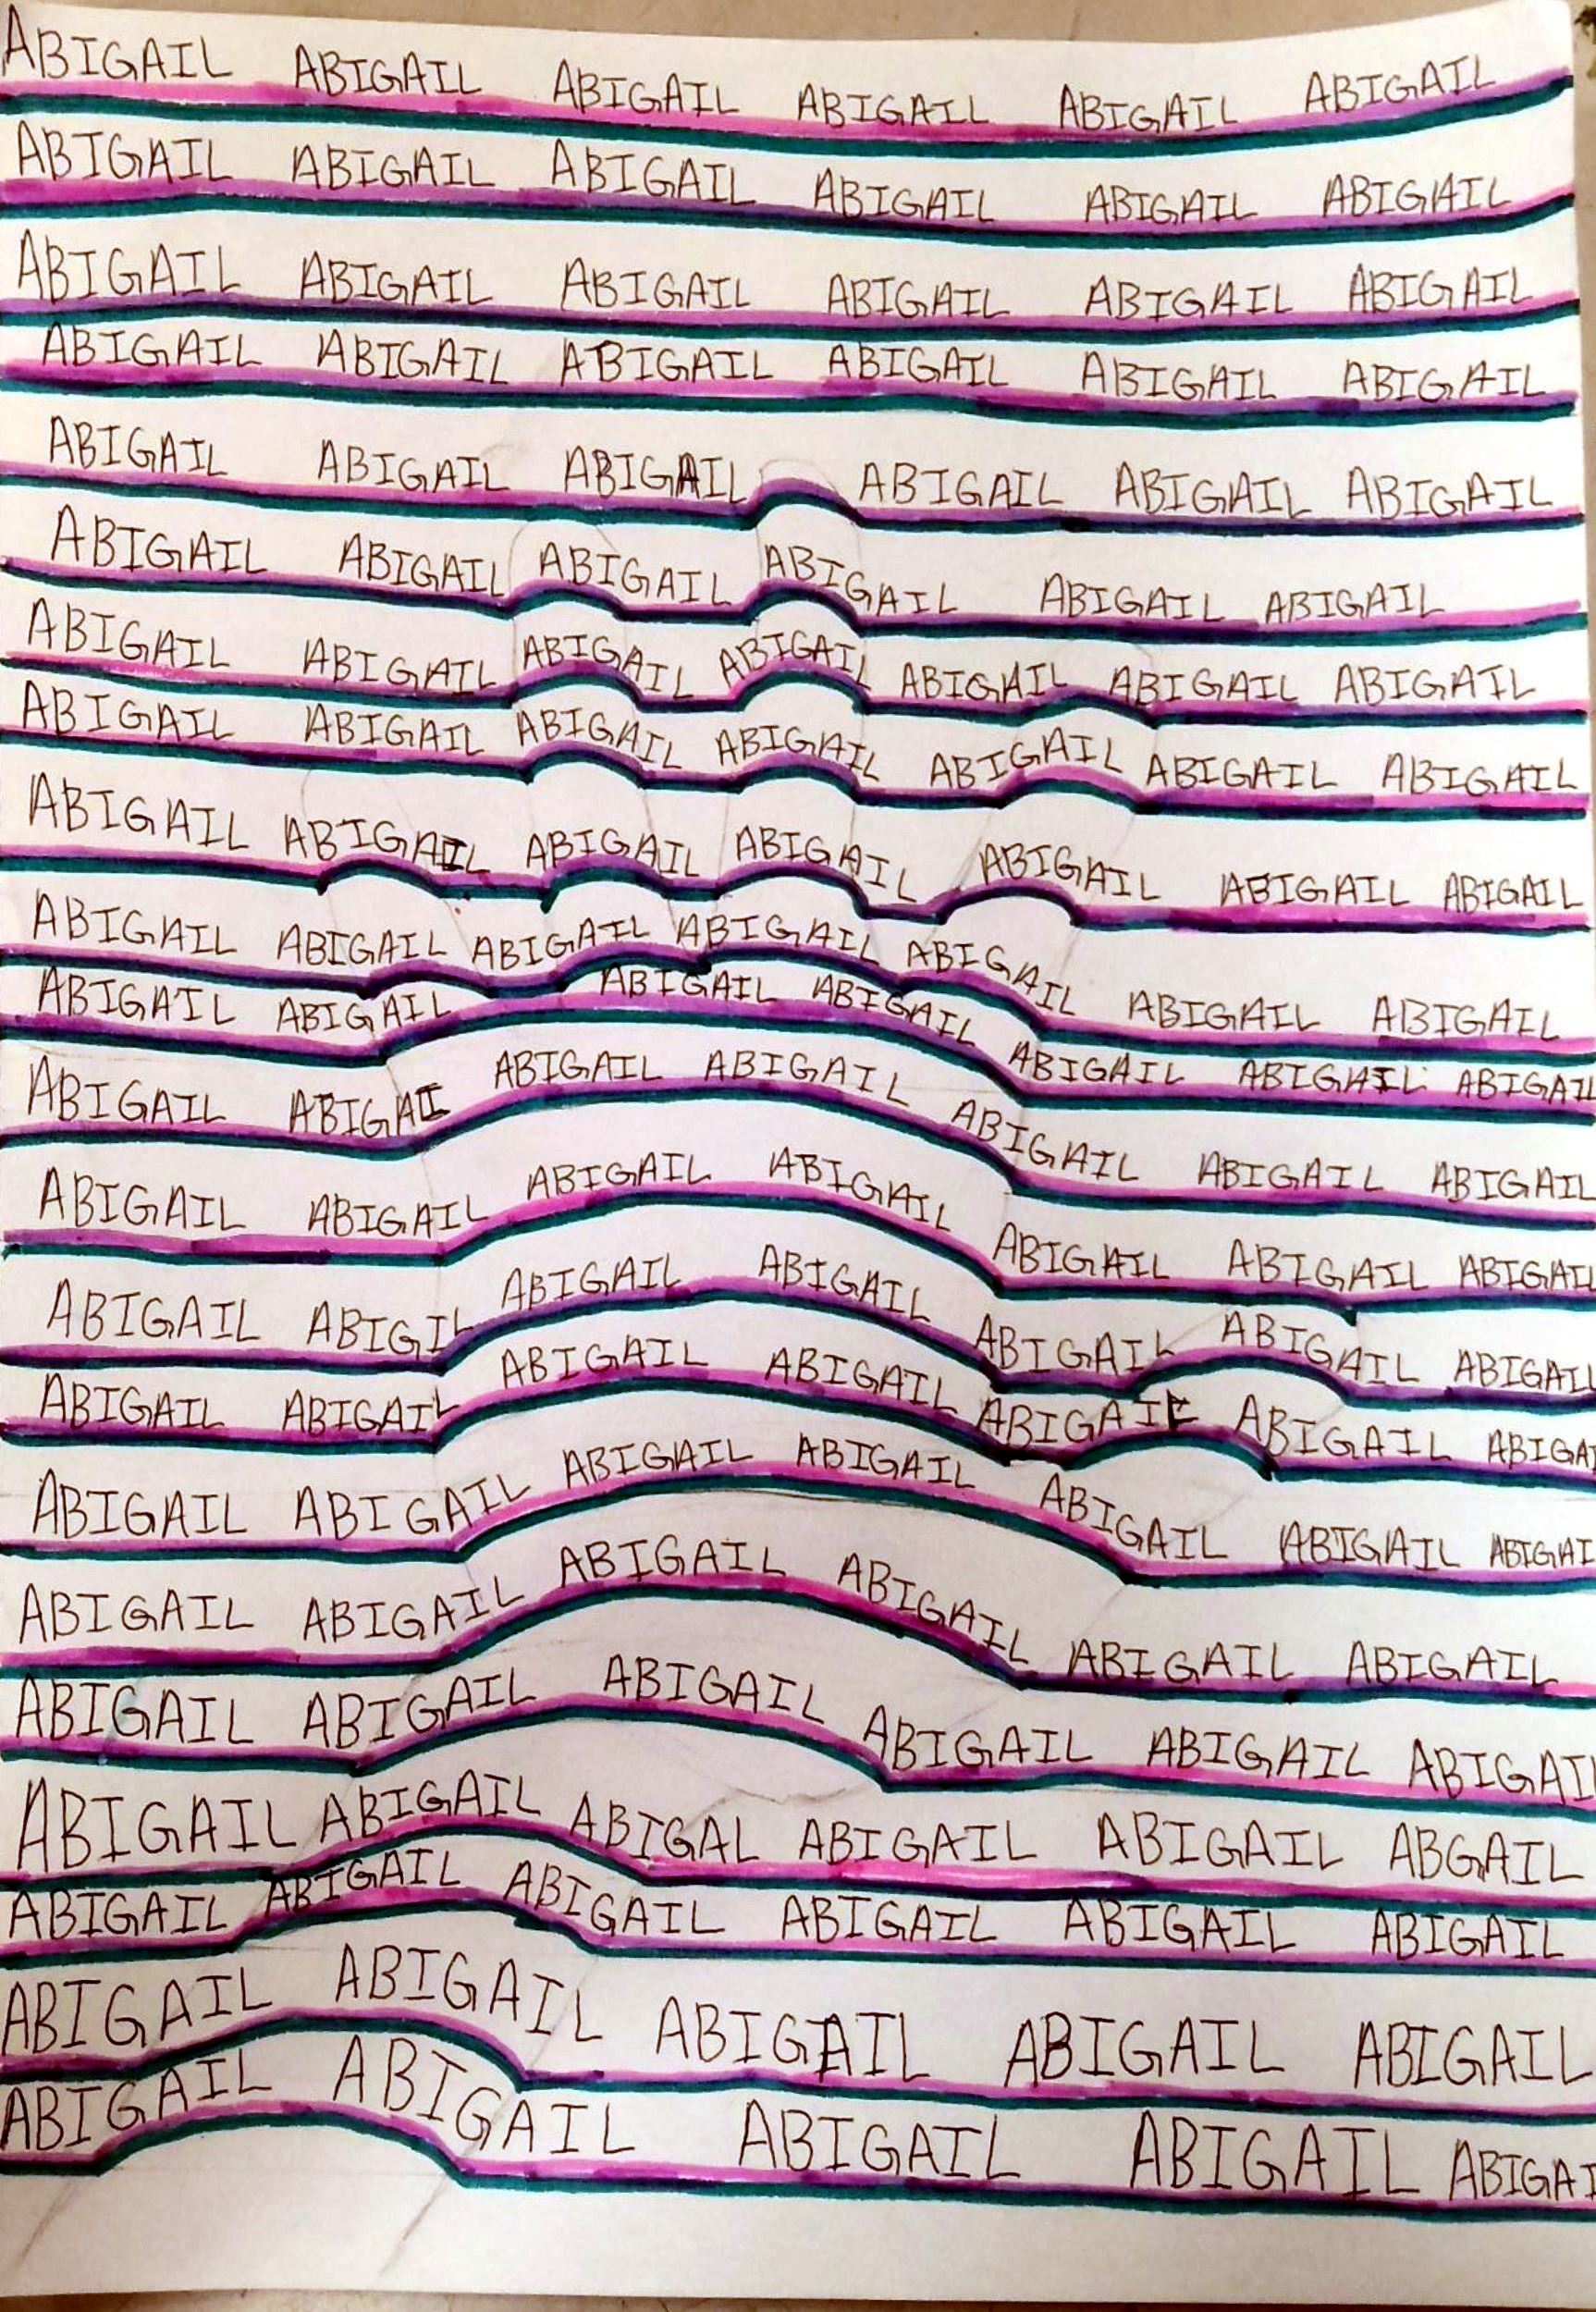 ABIGAIL ABIGAIL ABIGAIL ABIGAIL ABIGAIL ABIGAIL
ABIGAIL ABIGAIL ABIGAIL ABIGAIL ABIGAIL ABIGAIL
ABIGAIL ABIGAIL ABIGAIL ABIGAIL ABIGAIL ABIGAIL
ABIGAIL ABIGAIL ABIGAIL ABIGAIL ABIGAIL ABIGAIL
ABIGAIL ABIGAIL ABIGAIL ABIGAIL ABIGAIL ABIGAIL
ABIGAIL ABIGAIL ABIGAIL ABIGAIL ABIGAIL ABIGAIL
ABIGAIL ABIGAIL ABIGAIL ABIGAIL ABIGAIL ABIGAIL ABIGAIL
ABIGAIL ABIGAIL ABIGAIL ABIGAIL ABIGAIL ABIGAIL ABIGAIL
ABIGAIL ABIGAIL ABIGAIL ABIGAIL ABIGAIL ABIGAIL ABIGAIL
ABIGAIL ABIGAIL ABIGAIL ABIGAIL ABIGAIL ABIGAIL ABIGAIL
ABIGAIL ABIGAIL ABIGAIL ABIGAIL ABIGAIL ABIGAIL ABIGAIL
ABIGAIL ABIGAI ABIGAIL ABIGAIL ABIGAIL ABIGAIL ABIGAIL
ABIGAIL ABIGAIL ABIGAIL ABIGAIL ABIGAIL ABIGAIL ABIGAIL
ABIGAIL ABIGIL ABIGAIL ABIGAIL ABIGAIL ABIGAIL ABIGAIL
ABIGAIL ABIGAIL ABIGAIL ABIGAIL ABIGAIL ABIGAIL ABIGAI
ABIGAIL ABIGAIL ABIGAIL ABIGAIL ABIGAIL ABIGAIL ABIGAI
ABIGAIL ABIGAIL ABIGAIL ABIGAIL ABIGAIL ABIGAIL
ABIGAIL ABIGAIL ABIGAIL ABIGAIL ABIGAIL ABIGAI
ABIGAIL ABIGAIL ABIGAL ABIGAIL ABIGAIL ABGAIL
ABIGAIL ABIGAIL ABIGAIL ABIGAIL ABIGAIL ABIGAIL
ABIGAIL ABIGAIL ABIGAIL ABIGAIL ABIGAIL
ABIGAIL ABIGAIL ABIGAIL ABIGAIL ABIGAI